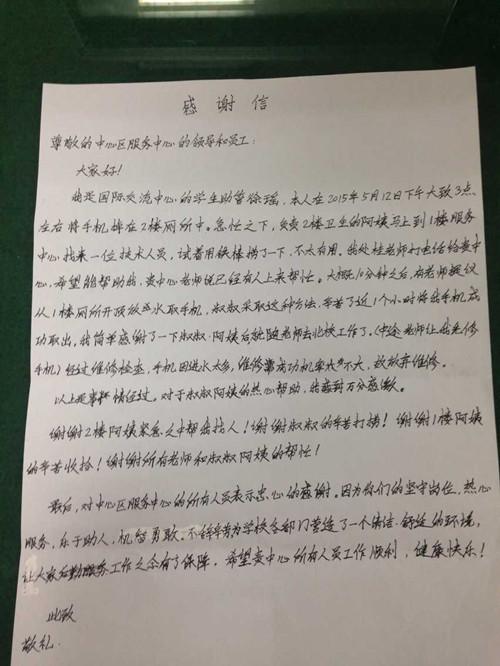 感谢信
尊敬的中心区服务中心的领导和员工:
大家好!
我是国际交流中心的学生助管徐瑶,本人在2015年5月12日下午大致3点
左右将手机掉在2楼厕所中。急忙之下,负责2楼卫生的阿姨马上到1楼服务
中心找来一位技术人员,试着用铁棒捞了一下,不太有用。我处桂老师打电话给贵中
心,希望能帮助我,贵中心老师说已经有人上来帮忙。大概10分钟之后,有老师提议
从1楼厕所开顶放水取手机,叔叔采取这种方法,辛苦了近1个小时将我手机成
功取出。我简单感谢了一下叔叔阿姨后就随老师去北校工作了。(中途老师让我先修
手机)经过维修检查,手机因进水太多,维修成功机率不大,故放弃维修。
以上是事情经过。对于叔叔阿姨的热心帮助,我感到万分感激。
谢谢2楼阿姨紧急之中帮我找人!谢谢叔叔的辛苦打捞!谢谢1楼阿姨
的辛苦收拾!谢谢所有老师和叔叔阿姨的帮忙!
最后,对中心区服务中心的所有人员表示衷心的感谢。因为你们的坚守岗位,热心
服务,乐于助人,机智勇敢,不辞辛苦为学校各部门营造了一个清洁、舒适的环境,
让大家工作之余有了保障。希望贵中心所有人员工作顺利,健康快乐!
此致
敬礼.